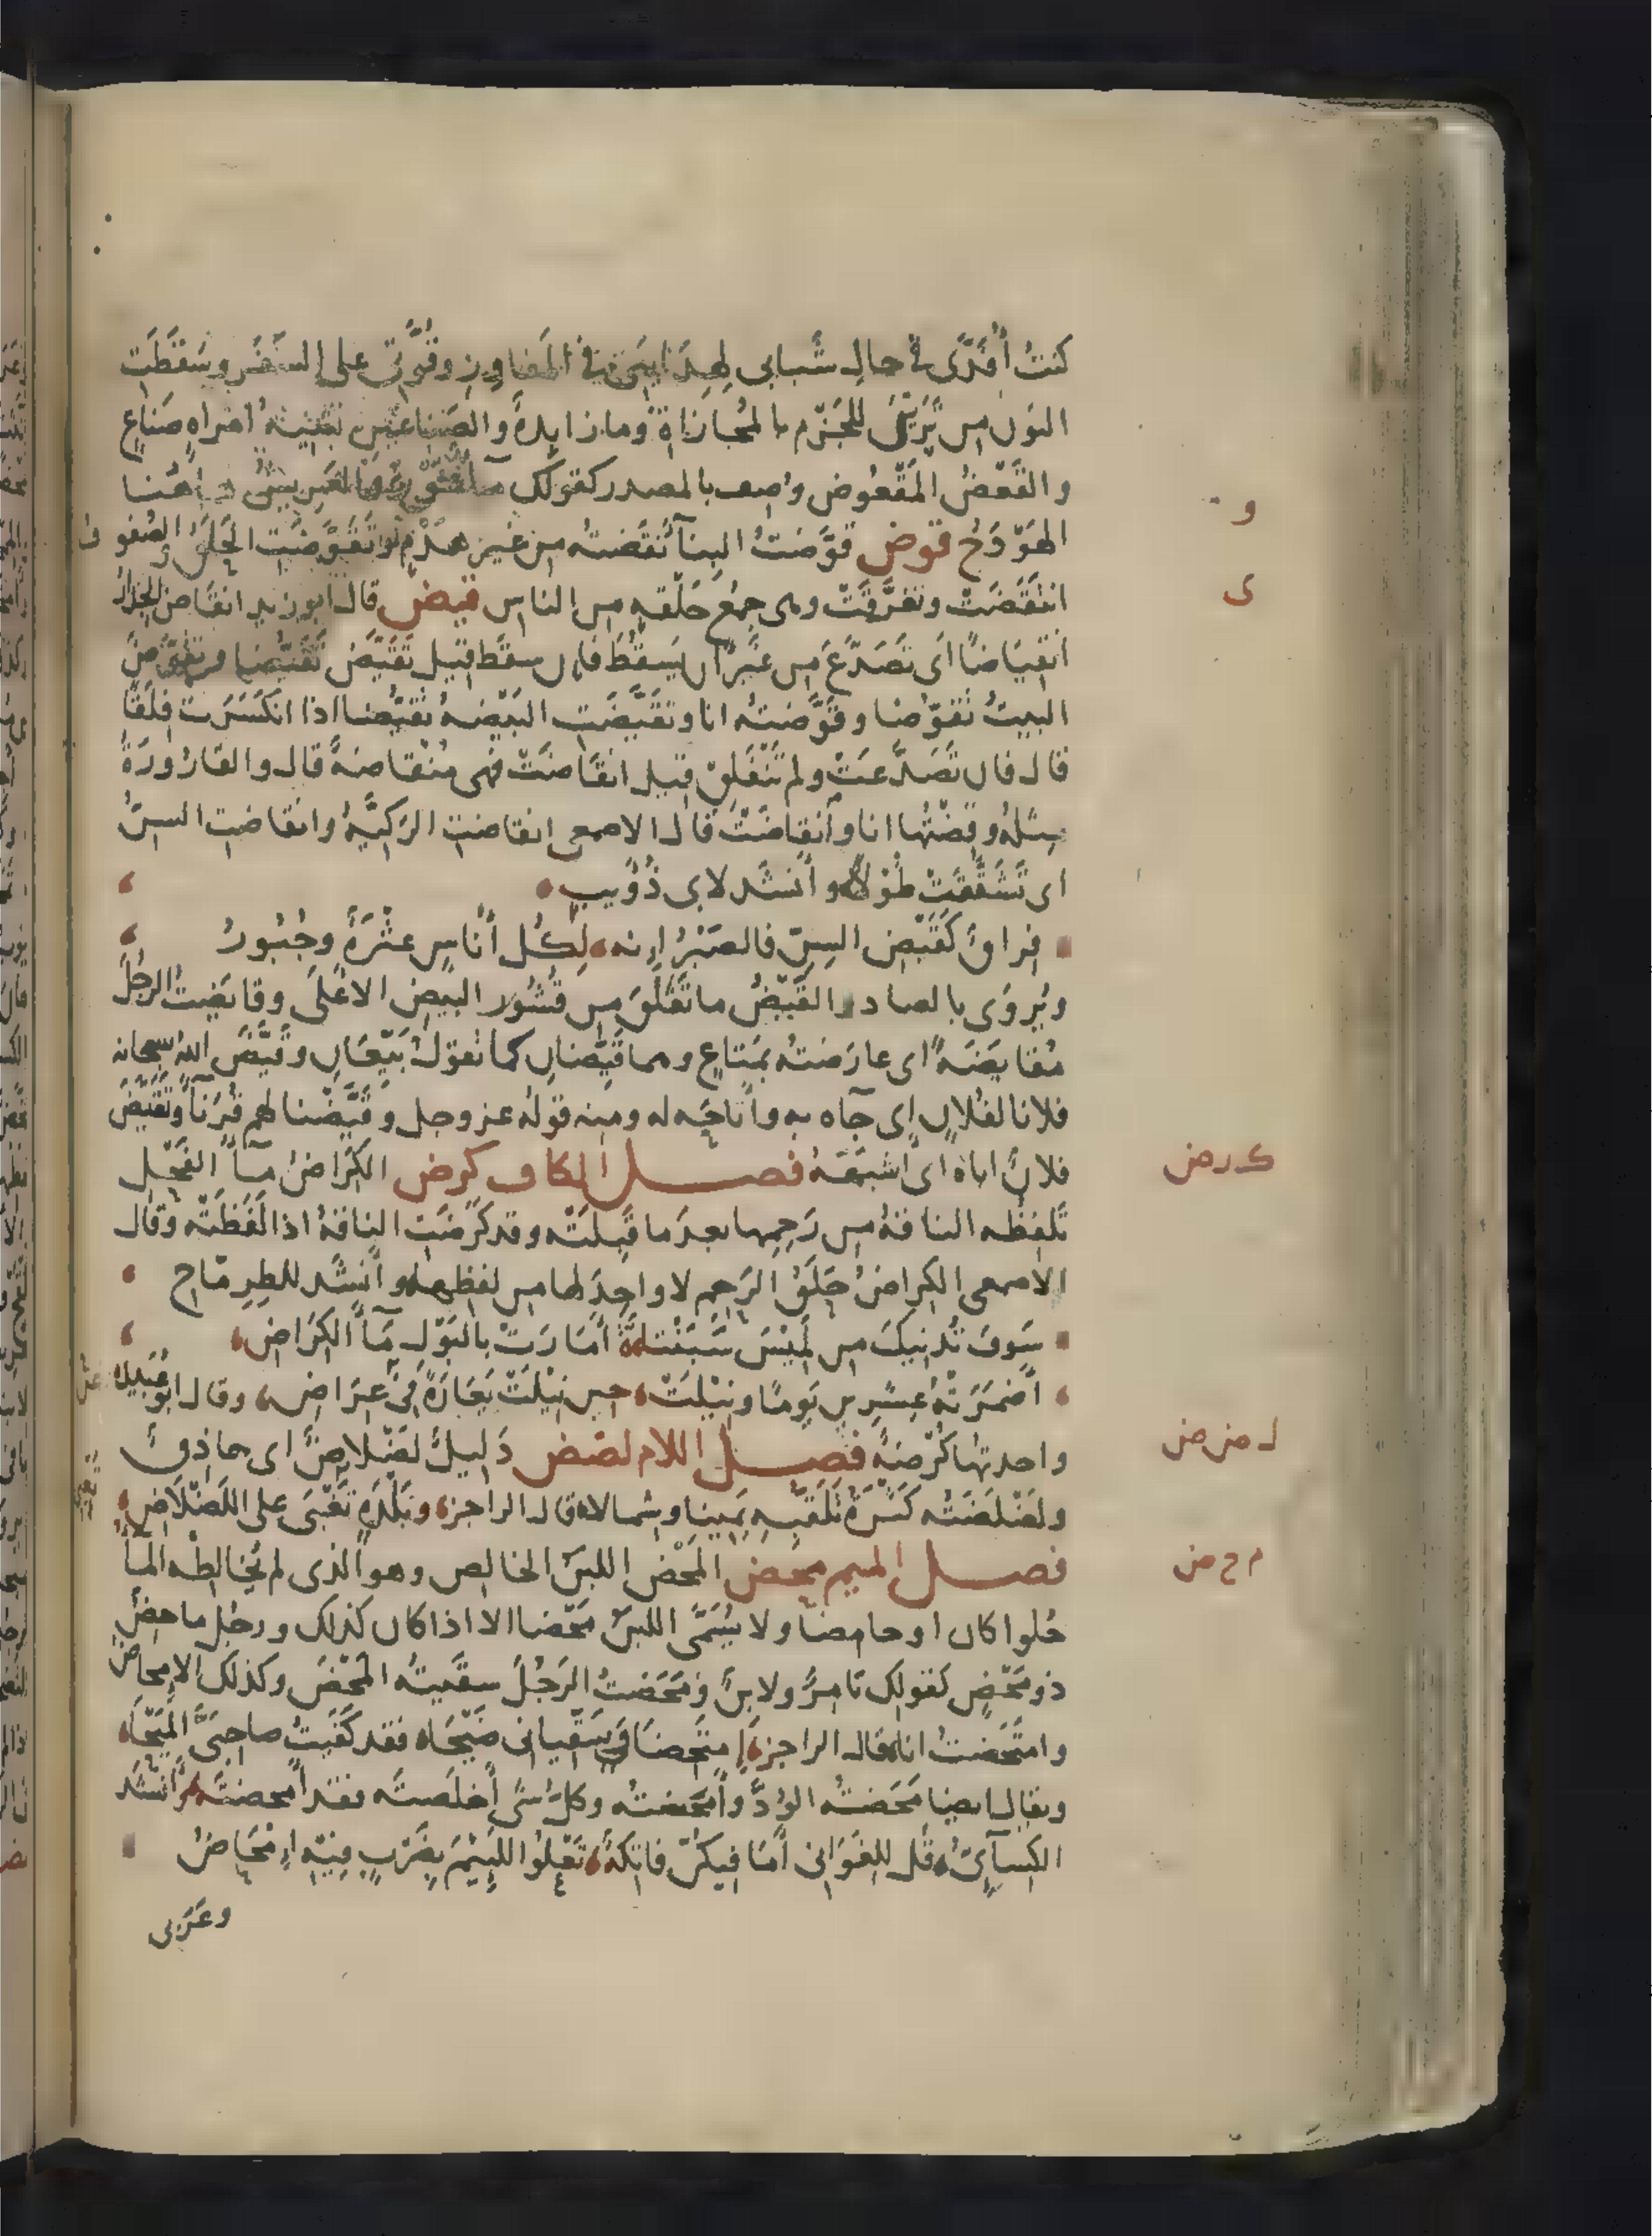 كنتُ أُفَدَّى في حالِ شَبابى لهِدَايتى فى المَفاوِزِ وقُوَّتى على السَفَر وسَقَطَت
النون من تَرَيْنى للجَزْم بالمُجازاة وما زايدةٌ والصَناعَينِ تثنيةُ امراهٍ صَنَاعٍ
والقَعْضُ المَقْعُوض وُصِف بالمصدر كقولك مآءٌ غَوْرٌ والعَرِيشُ هاهُنا
الهَوْدَجُ قوض قَوَّضتُ البنآ نقَضتُه من غير هَدْمٍ وتَقَوَّضَتِ الحِلَقُ والصُفوف
انتَقَضَتْ وتفرَّقَتْ وهى جمعُ حَلْقه من الناس قيض قال ابو زيد انقاضَ الجدارُ
انقِيَاضًا اى تَصَدَّعَ من غير ان يَسقُطَ فان سقَط قيل تَقَيَّضَ تَقَيُّضا وتقوَّضَ
البيتُ تقوّضا وقَوَّضتُه انا وتقَيَّضَتِ البَيْضهُ تقيُّضا اذا انكَسَرَت فِلَقًا
قال فان تَصَدَّعَتْ ولم تَنْفَلِقْ قيل انقَاضَتْ فهى مُنْقاضةٌ قال والقَارُورَةُ
مِثلهُ وقِضْتُها انا وانقاضَتْ قال الاصمعى انقاضتِ الرَكِيَّةُ وانقاضتِ السِنُّ
اى تَشَقَّقَتْ طُوْلاً وأنشد لابى ذُؤَيبٍ
فِراقٌ كَقَيْضِ السِنِّ فالصَبْرُ إنه لِكُل أُناسٍ عَثْرَةٌ وجُبُورُ
ويُروَى بالصاد والقَيْضُ ما تَفَلَّقَ من قُشُور البيض الاعْلَى وقايَضتُ الرجُلَ
مُقايَضَةً اى عارَضتُه بمَتاعٍ وهما قَيِّضانِ كما تقول بَيِّعَانِ وقَيَّضَ اللهُ سبحانه
فلانا لفُلانٍ اى جآء به وأتاحَه له ومنه قوله عز وجل وقَيَّضْنا لهم قُرَنآ وتَقَيَّضَ
فلانٌ اباه اى اشبَهَهُ فصل الكاف كرض الكِرَاضُ مآ الفَحْلِ
تَلفِظُه الناقةُ من رَحِمِها بعدَ ما قَبِلَتْه وقد كَرَضَتِ الناقةُ اذا لَفَظَتْه وقال
الاصمعى الكراضُ حَلَقُ الرَحِمِ لا واحِدَ لها من لفظها وأنشد للطِرِمّاح
سَوفَ تُدنيكَ من لَميْسَ سَبَنْتاةٌ أمَارَتْ بالبَوْل مَآ الكِرَاض
أضمَرَتْهُ عِشرين يَومًا ونِيْلَتْ حين نِيْلَتْ يَعَارَةً فى عِرَاض وقال ابو عُبَيد
واحدتها كُرْضةٌ فصل اللام لضض دَليلٌ لَضْلاضٌ اى حاذِقٌ
ولَضْلَضَتُه كَثرةُ تَلَفُّتِه يَمينا وشمالا قال الراجز وبَلْدَةٍ تَغْبَى على اللَضْلَاضِ
فصل الميم محض المَحْضُ اللبنُ الخالص وهو الذى لم يُخالِطْه المآ
حُلوا كان او حامضا ولا يُسَمَّى اللبنُ مَحْضا الا اذا كان كذلك ورجُل ماحِضٌ
ذو مَحْضٍ كقولك تامِرٌ ولابِنٌ ومَحَضتُ الرَجُلَ سقَيتُه المَحْضَ وكذلك الإمحاض
وامتَحَضتُ انا قال الراجز امتَحِضا وسَقِّيانى ضَيْحَا فقد كَفَيتُ صاحِبَىَّ المَيْحَا
ويقال ايضا مَحَضتُه الوُدَّ وأمحَضتُه وكلُّ شىٍ أخلَصتَه فقد أمحضتَه وأنشد
الكِسآئى قل للغَوَانى أمَا فيكنّ فاتِكةٌ تَعْلُوا اللَئِيْمَ بضَرْبٍ فيه إمْحَاضُ
وعَرَبى
و
ى
ك ر ض
ل ض ض
م ح ض